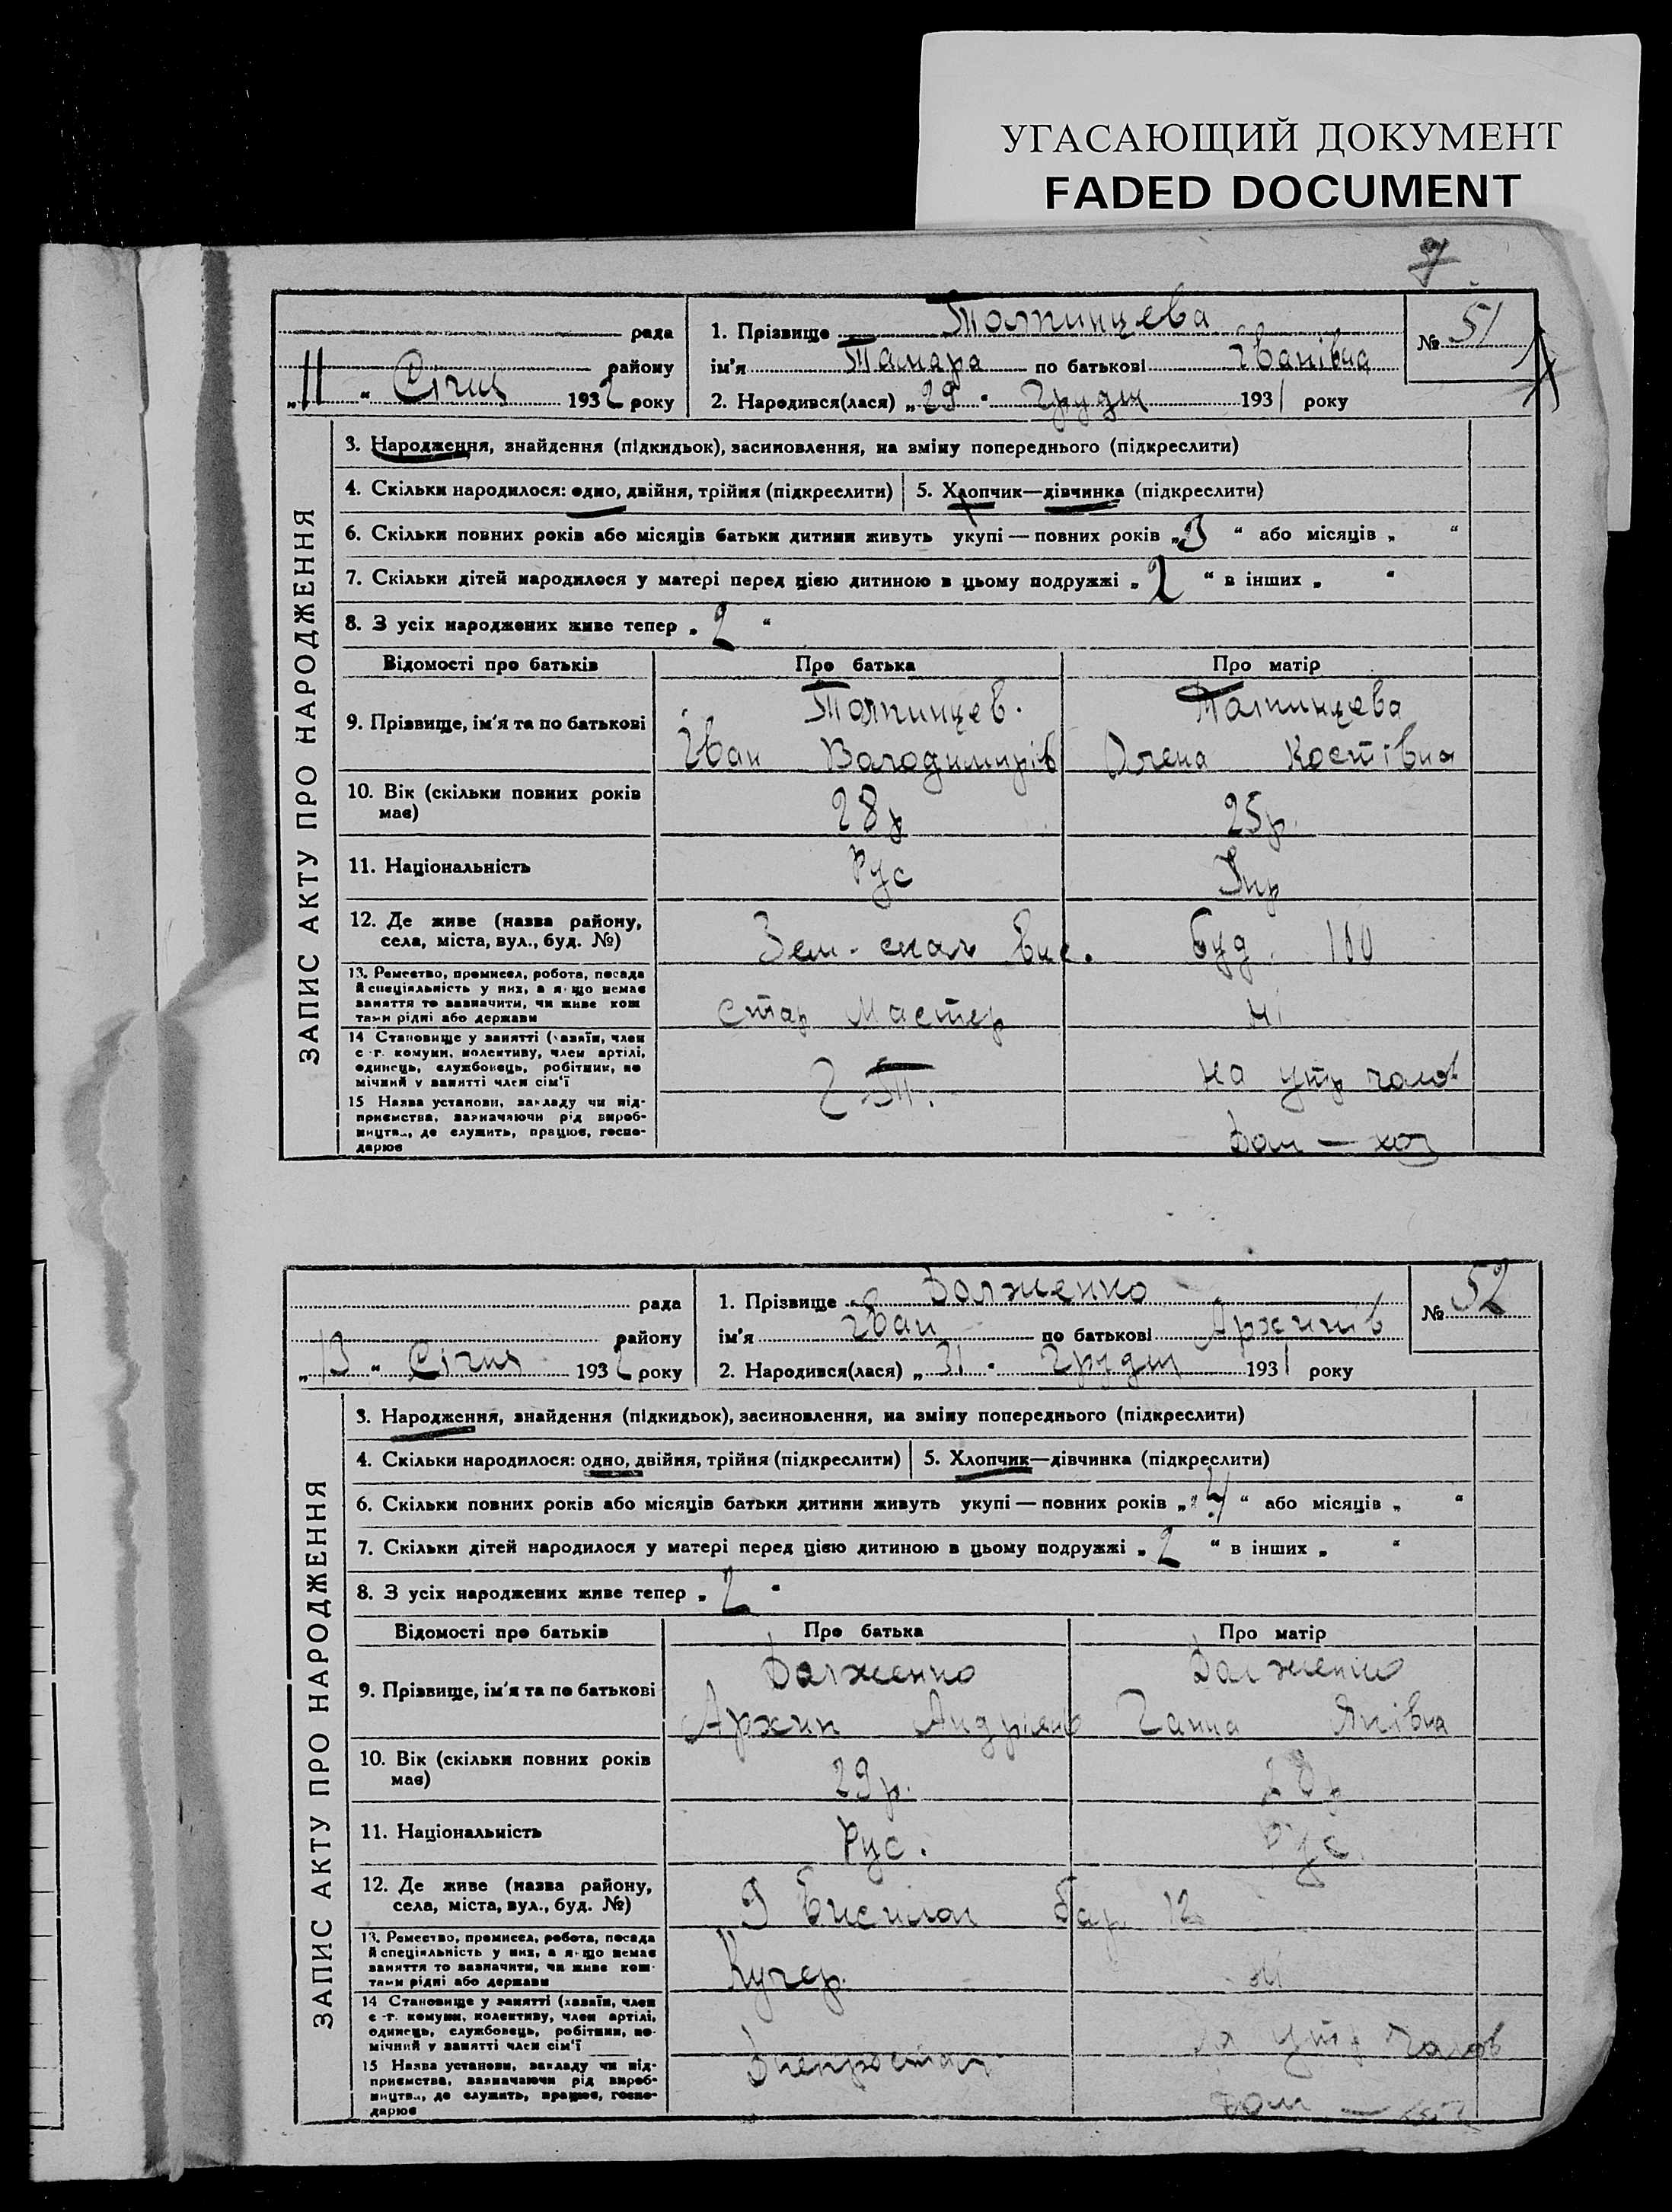 УГАСАЮЩИЙ ДОКУМЕНТ
FADED DOCUMENT
7
ЗАПИС АКТУ ПРО НАРОДЖЕННЯ
рада
району
„11“ Січня 1932 року
1. Прізвище Толпинцева
ім'я Тамара по батькові Іванівна
№ 51
2. Народився(лася) „29“ Грудня 1931 року
3. Народження, знайдення (підкидьок), засиновлення, на зміну попереднього (підкреслити)
4. Скільки народилося: одно, двійня, трійня (підкреслити) 5. Хлопчик—дівчинка (підкреслити)
6. Скільки повних років або місяців батьки дитини живуть укупі — повних років „3“ або місяців „ “
7. Скільки дітей народилося у матері перед цією дитиною в цьому подружжі „2“ в інших „ “
8. З усіх народжених живе тепер „2“
Відомості про батьків Про батька Про матір
9. Прізвище, ім'я та по батькові
Толпинцев. Толпинцева
Іван Володимирів Олена Костівна
10. Вік (скільки повних років має) 28 р 25 р.
11. Національність Рус Укр
12. Де живе (назва району, села, міста, вул., буд. №) Зем. - вис. буд. 100
13. Ремество, промисел, робота, посада й спеціяльність у них, а якщо немає заняття то зазначити, чи живе коштами рідні або держави
стар Мастер ні
14 Становище у занятті (хазяїн, член с.-г. комуни, колективу, член артілі, одинець, службовець, робітник, помічний у занятті член сім'ї
на утр чолов
15 Назва установи, закладу чи підприємства, зазначаючи рід виробництва, де служить, працює, господарює
Дом — хоз
ЗАПИС АКТУ ПРО НАРОДЖЕННЯ
рада
району
„13“ Січня 1932 року
1. Прізвище Долженко
ім'я Іван по батькові Архипів
№ 52
2. Народився(лася) „31“ Грудня 1931 року
3. Народження, знайдення (підкидьок), засиновлення, на зміну попереднього (підкреслити)
4. Скільки народилося: одно, двійня, трійня (підкреслити) 5. Хлопчик—дівчинка (підкреслити)
6. Скільки повних років або місяців батьки дитини живуть укупі — повних років „4“ або місяців „ “
7. Скільки дітей народилося у матері перед цією дитиною в цьому подружжі „2“ в інших „ “
8. З усіх народжених живе тепер „2“
Відомості про батьків Про батька Про матір
9. Прізвище, ім'я та по батькові
Долженко Долженко
Архип Андріянів Ганна Яківна
10. Вік (скільки повних років має) 29 р. 28 р
11. Національність Рус. Рус.
12. Де живе (назва району, села, міста, вул., буд. №) 9 Висилок Бар. 12
13. Ремество, промисел, робота, посада й спеціяльність у них, а якщо немає заняття то зазначити, чи живе коштами рідні або держави
Кучер. ні
14 Становище у занятті (хазяїн, член с.-г. комуни, колективу, член артілі, одинець, службовець, робітник, помічний у занятті член сім'ї
на утр чолов
15 Назва установи, закладу чи підприємства, зазначаючи рід виробництва, де служить, працює, господарює
Днепросталь Дом — хоз